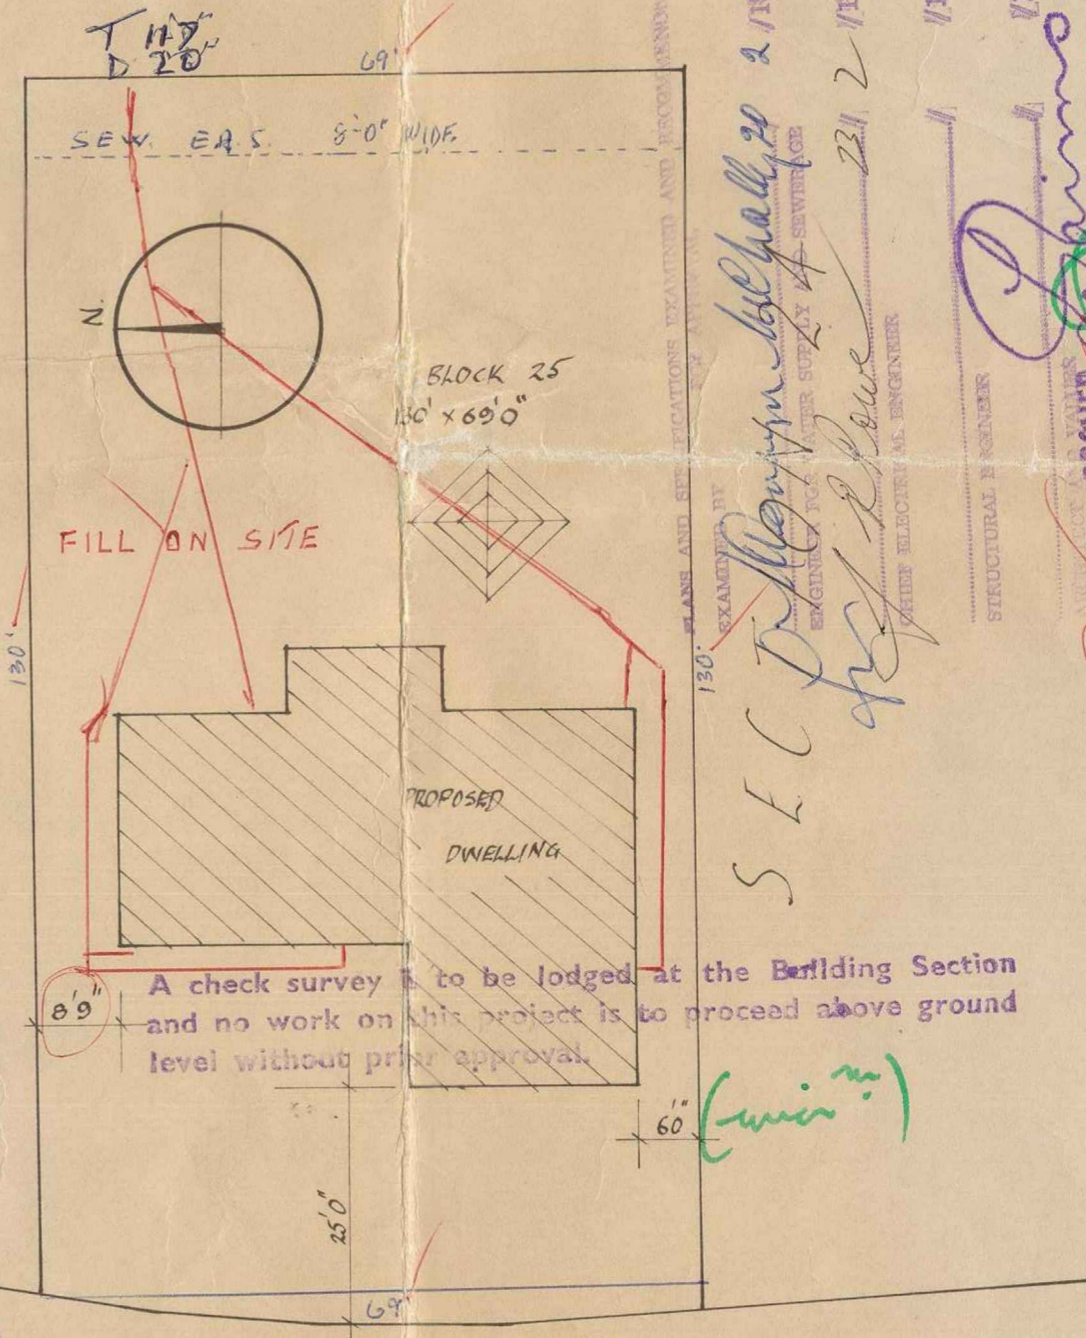 T 11'7"
D 2'0"
69'
SEW. EAS. 8'-0" WIDE.
N.
BLOCK 25
130' × 69'0"
FILL ON SITE
130'
130'
PROPOSED
DWELLING
A check survey is to be lodged at the Building Section
and no work on this project is to proceed above ground
level without prior approval.
8'9"
6'0"
(min m)
25'0"
69'
PLANS AND SPECIFICATIONS EXAMINED AND RECOMMEND
FOR APPROVAL.
EXAMINED BY
ENGINEER FOR WATER SUPPLY & SEWERAGE
23 2
CHIEF ELECTRICAL ENGINEER
STRUCTURAL ENGINEER
S E C